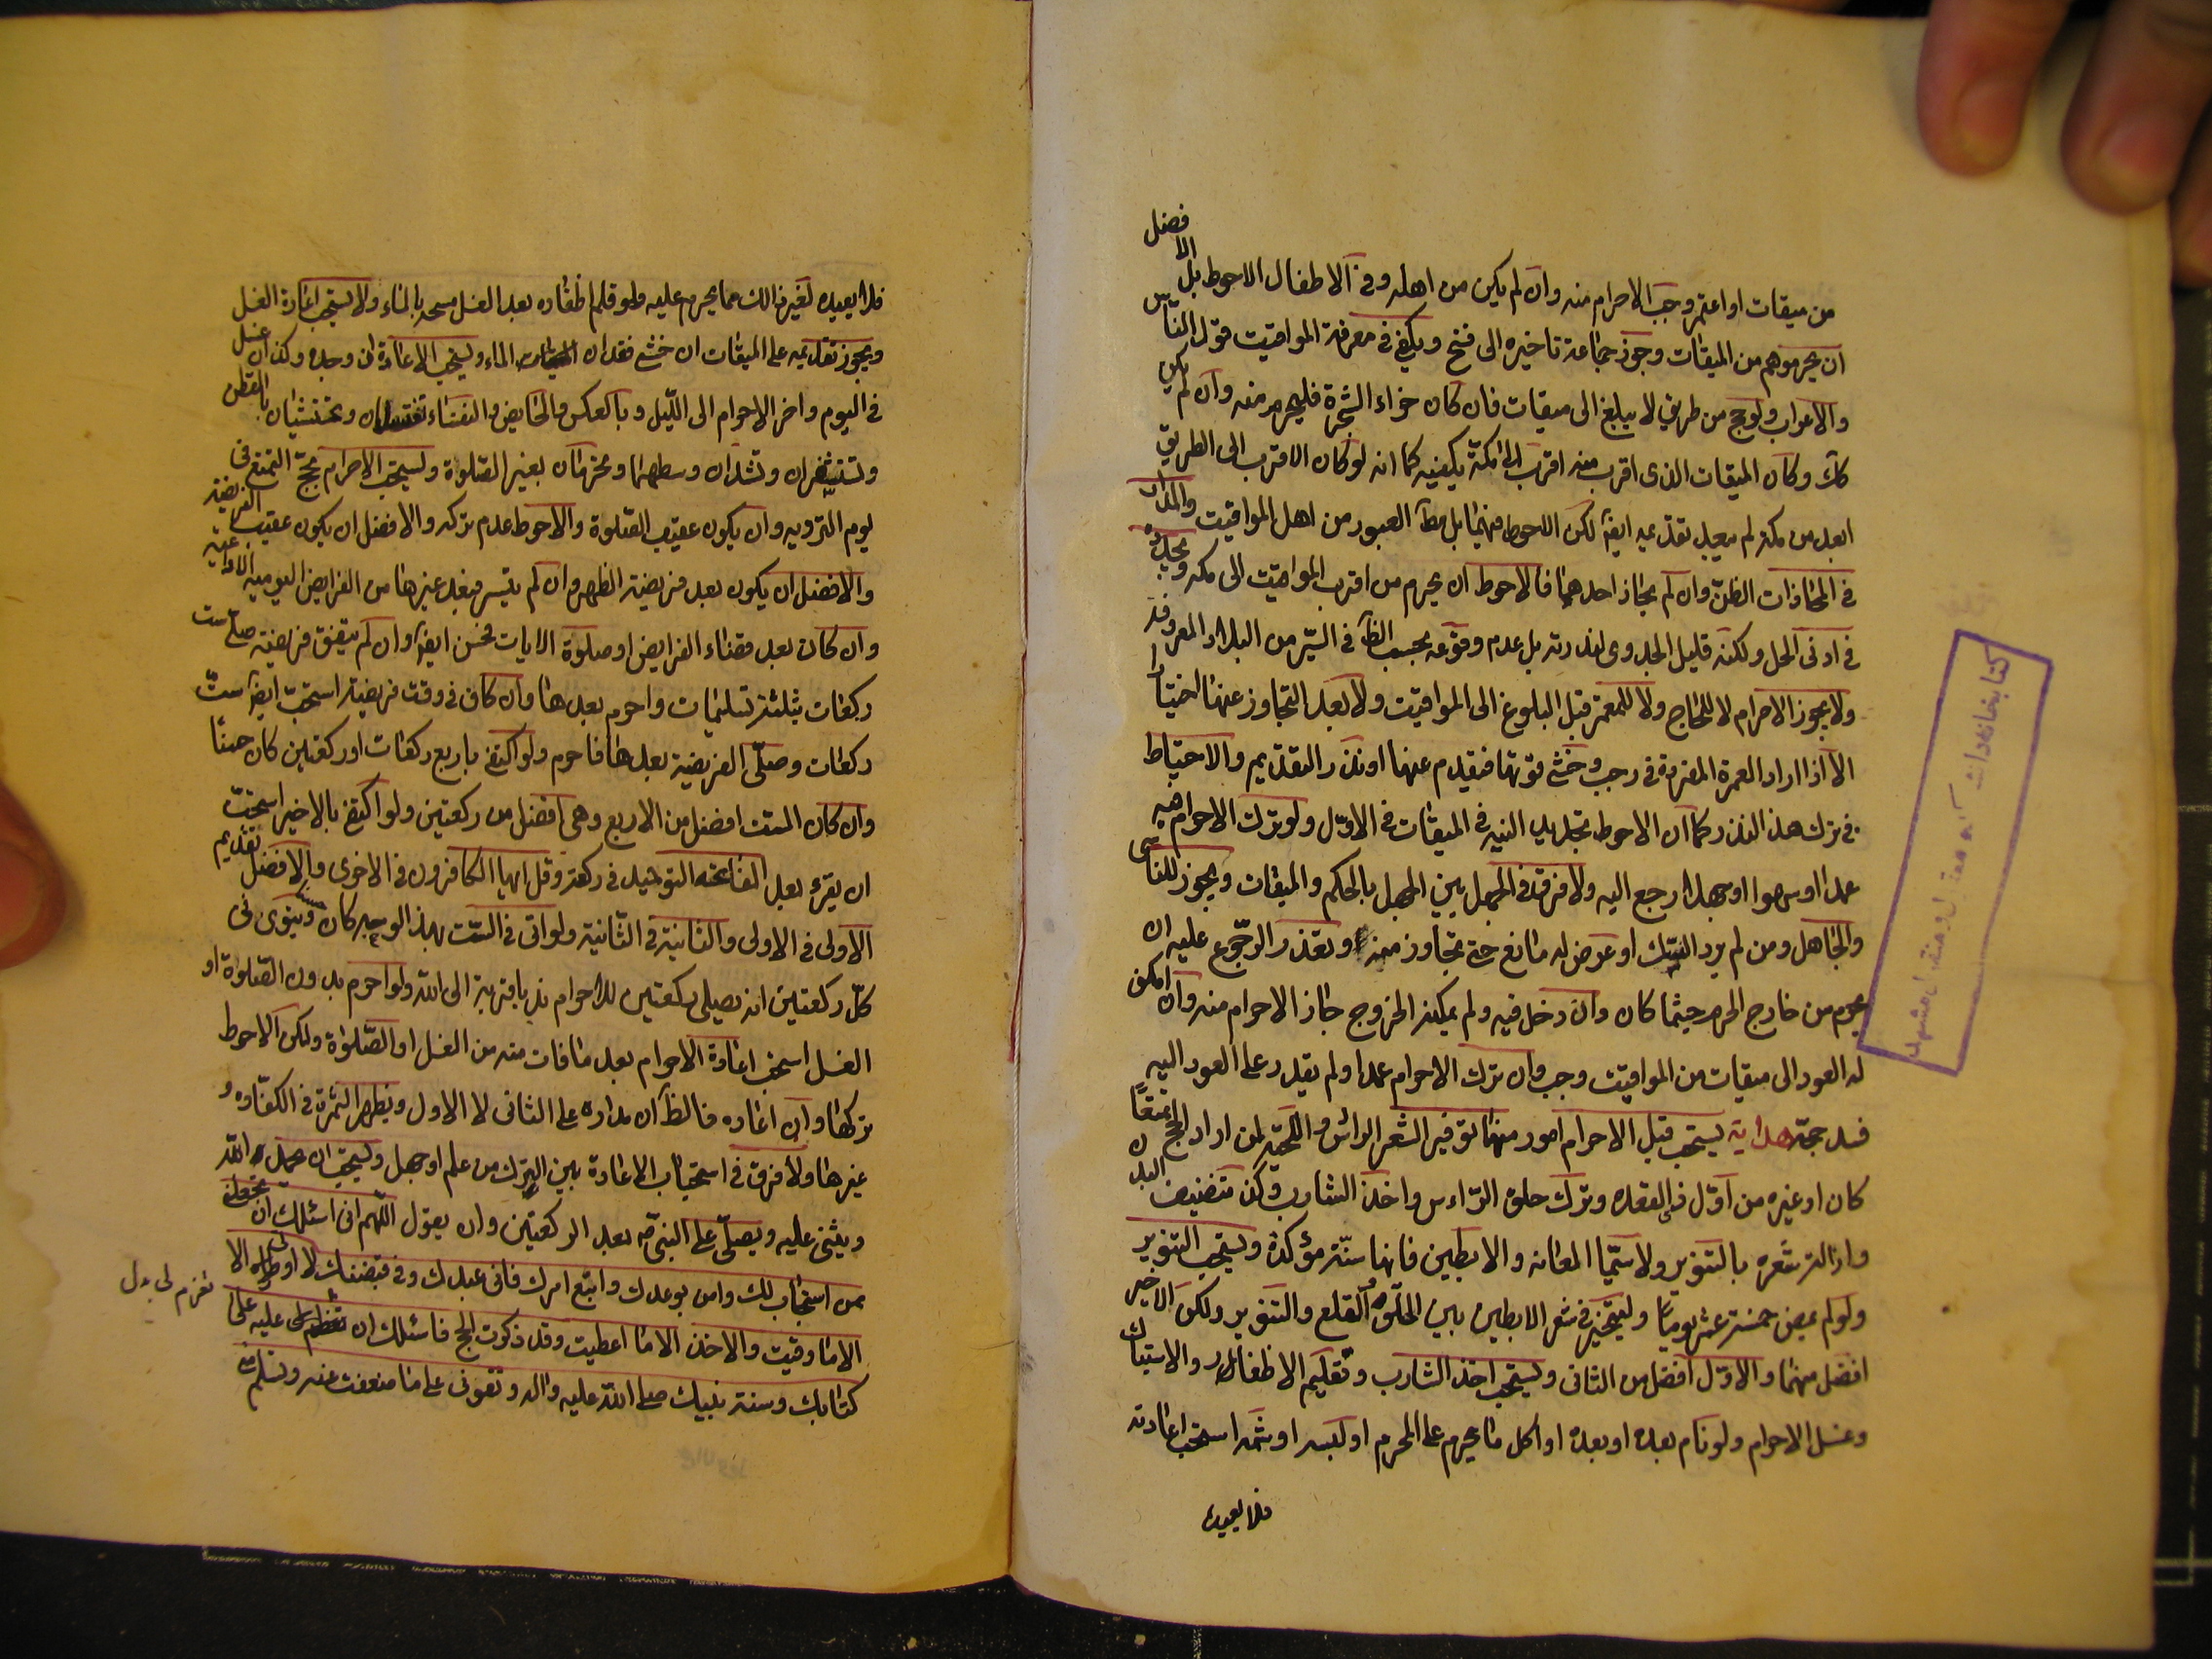 من ميقات او اعتمر وجب الاحرام منه وان لم يكن من اهله وفى الاطفال الاحوط بل الافضل
ان يحرموهم من الميقات وجوز جماعة تاخيره الى فخ ويكفى فى معرفة المواقيت قول الناس
والاعراب ولو حج من طريق لا يبلغ الى ميقات فان كان حذاء الشجرة فليحرم منه وان لم يكن
كك وكان الميقات الذى اقرب منه اقرب الى مكة يكفيه كما انه لو كان الاقرب الى الطريق
ابعد من مكة لم يبعد تقديمه ايضا لكن الاحوط فيهما بل مطلقا العبور من اهل المواقيت والمدار
فى المحاذات الظن وان لم يحاذ احدهما فالاحوط ان يحرم من اقرب المواقيت الى مكه ويجدده
فى ادنى الحل ولكنه قليل الجدوى لندرته بل عدم وقوعه بحسب الظ فى السير من البلاد المعروفة
ولا يجوز الاحرام لا للحاج ولا للمعتمر قبل البلوغ الى المواقيت ولا بعد التجاوز عنها اختيارا
الا اذا اراد العمرة المفردة فى رجب وخشى فوتها فيقدم عنها او نذر التقديم والاحتياط
فى ترك هذا النذر كما ان الاحوط تجديد النيه فى الميقات فى الاول ولو ترك الاحرام فيه
عمدا او سهوا او جهلا رجع اليه ولا فرق فى الجهل بين الجهل بالحكم والميقات ويجوز للناسى
والجاهل ومن لم يرد النسك او عرض له مانع حتى تجاوز منه وتعذر الرجوع عليه ان
يحرم من خارج الحرم حيثما كان وان دخل فيه ولم يمكنه الخروج جاز الاحرام منه وان امكن
له العود الى ميقات من المواقيت وجب وان ترك الاحرام عمدا ولم يقدر على العود اليه
فسد حجه هداية يستحب قبل الاحرام امور منها توفير الشعر الراس واللحية لمن اراد الحج تمتعا
كان او غيره من اول ذى القعده وترك حلق الراس واخذ الشارب وكذا تنظيف البدن
وازالة شعره بالتنوير ولا سيما العانه والابطين فانها سنة مؤكدة ويستحب التنوير
ولو لم يمض خمسة عشر يوما ويتخير فى شعر الابطين بين الحلق والقلع والتنوير ولكن الاخير
افضل منهما والاول افضل من الثانى ويستحب اخذ الشارب وتقليم الاظفار والاستياك
وغسل الاحرام ولو نام بعده او بعده او اكل ما يحرم على المحرم او لبسه او شمه استحب اعادته
فلا يعيده
فلا يعيده لغير ذالك مما يحرم عليه ولو قلم اظفاره بعد الغسل مسحه بالماء ولا يستحب اعادة الغسل
ويجوز تقديمه على الميقات ان خشى فقدان الماء ويستحب الاعادة ان وجده وكذا ان غسل
فى اليوم واخر الاحرام الى الليل وبالعكس والحايض والنفساء تغتسلان وتحتشيان بالقطن
وتستثفران وتشدان وسطهما وتحرمان بغير الصلوة ويستحب الاحرام بحج التمتع فى
يوم الترويه وان يكون عقيب الصلوة والاحوط عدم تركه والافضل ان يكون عقيب الفريضة
والافضل ان يكون بعد فريضة الظهر وان لم يتيسر فبعد غيرها من الفرايض اليوميه الادائية
وان كان بعد قضاء الفرايض او صلوة الايات فحسن ايضا وان لم يتفق فريضة صلى ست
ركعات بثلثة تسليمات واحرم بعدها وان كان فى وقت فريضة استحب ايضا ست
ركعات وصلى الفريضة بعدها فاحرم ولو اكتفى باربع ركعات او ركعتين كان حسنا
وان كان الست افضل من الاربع وهى افضل من ركعتين ولو اكتفى بالاخير استحب
ان يقرء بعد الفاتحه التوحيد فى ركعة وقل ايها الكافرون فى الاخرى والافضل تقديم
الاولى فى الاولى والثانية فى الثانية ولو اتى فى الست بهذا الوجه كان حسنا وينوى فى
كل ركعتين انه يصلى ركعتين للاحرام ندبا قربة الى الله ولو احرم بدون الصلوة او
الغسل استحب اعادة الاحرام بعد ما فات منه من الغسل او الصلوة ولكن الاحوط
تركها وان اعاده فالظ ان مداره على الثانى لا الاول ويظهر الثمرة فى الكفاره و
غيرها ولا فرق فى استحباب الاعادة بين الترك من علم او جهل ويستحب ان يحمد الله
ويثنى عليه ويصلى على النبى بعد الركعتين وان يقول اللهم انى اسئلك ان تجعلنى
ممن استجاب لك وامن بوعدك واتبع امرك فانى عبدك وفى قبضتك لا اوقى الا
الا ما وقيت والاخذ الا ما اعطيت وقد ذكرت الحج فاسئلك ان عليه على
تعزم لى بدل
كتابك وسنة نبيك صلى الله عليه واله وتقونى على ما ضعفت عنه وتسلم منى